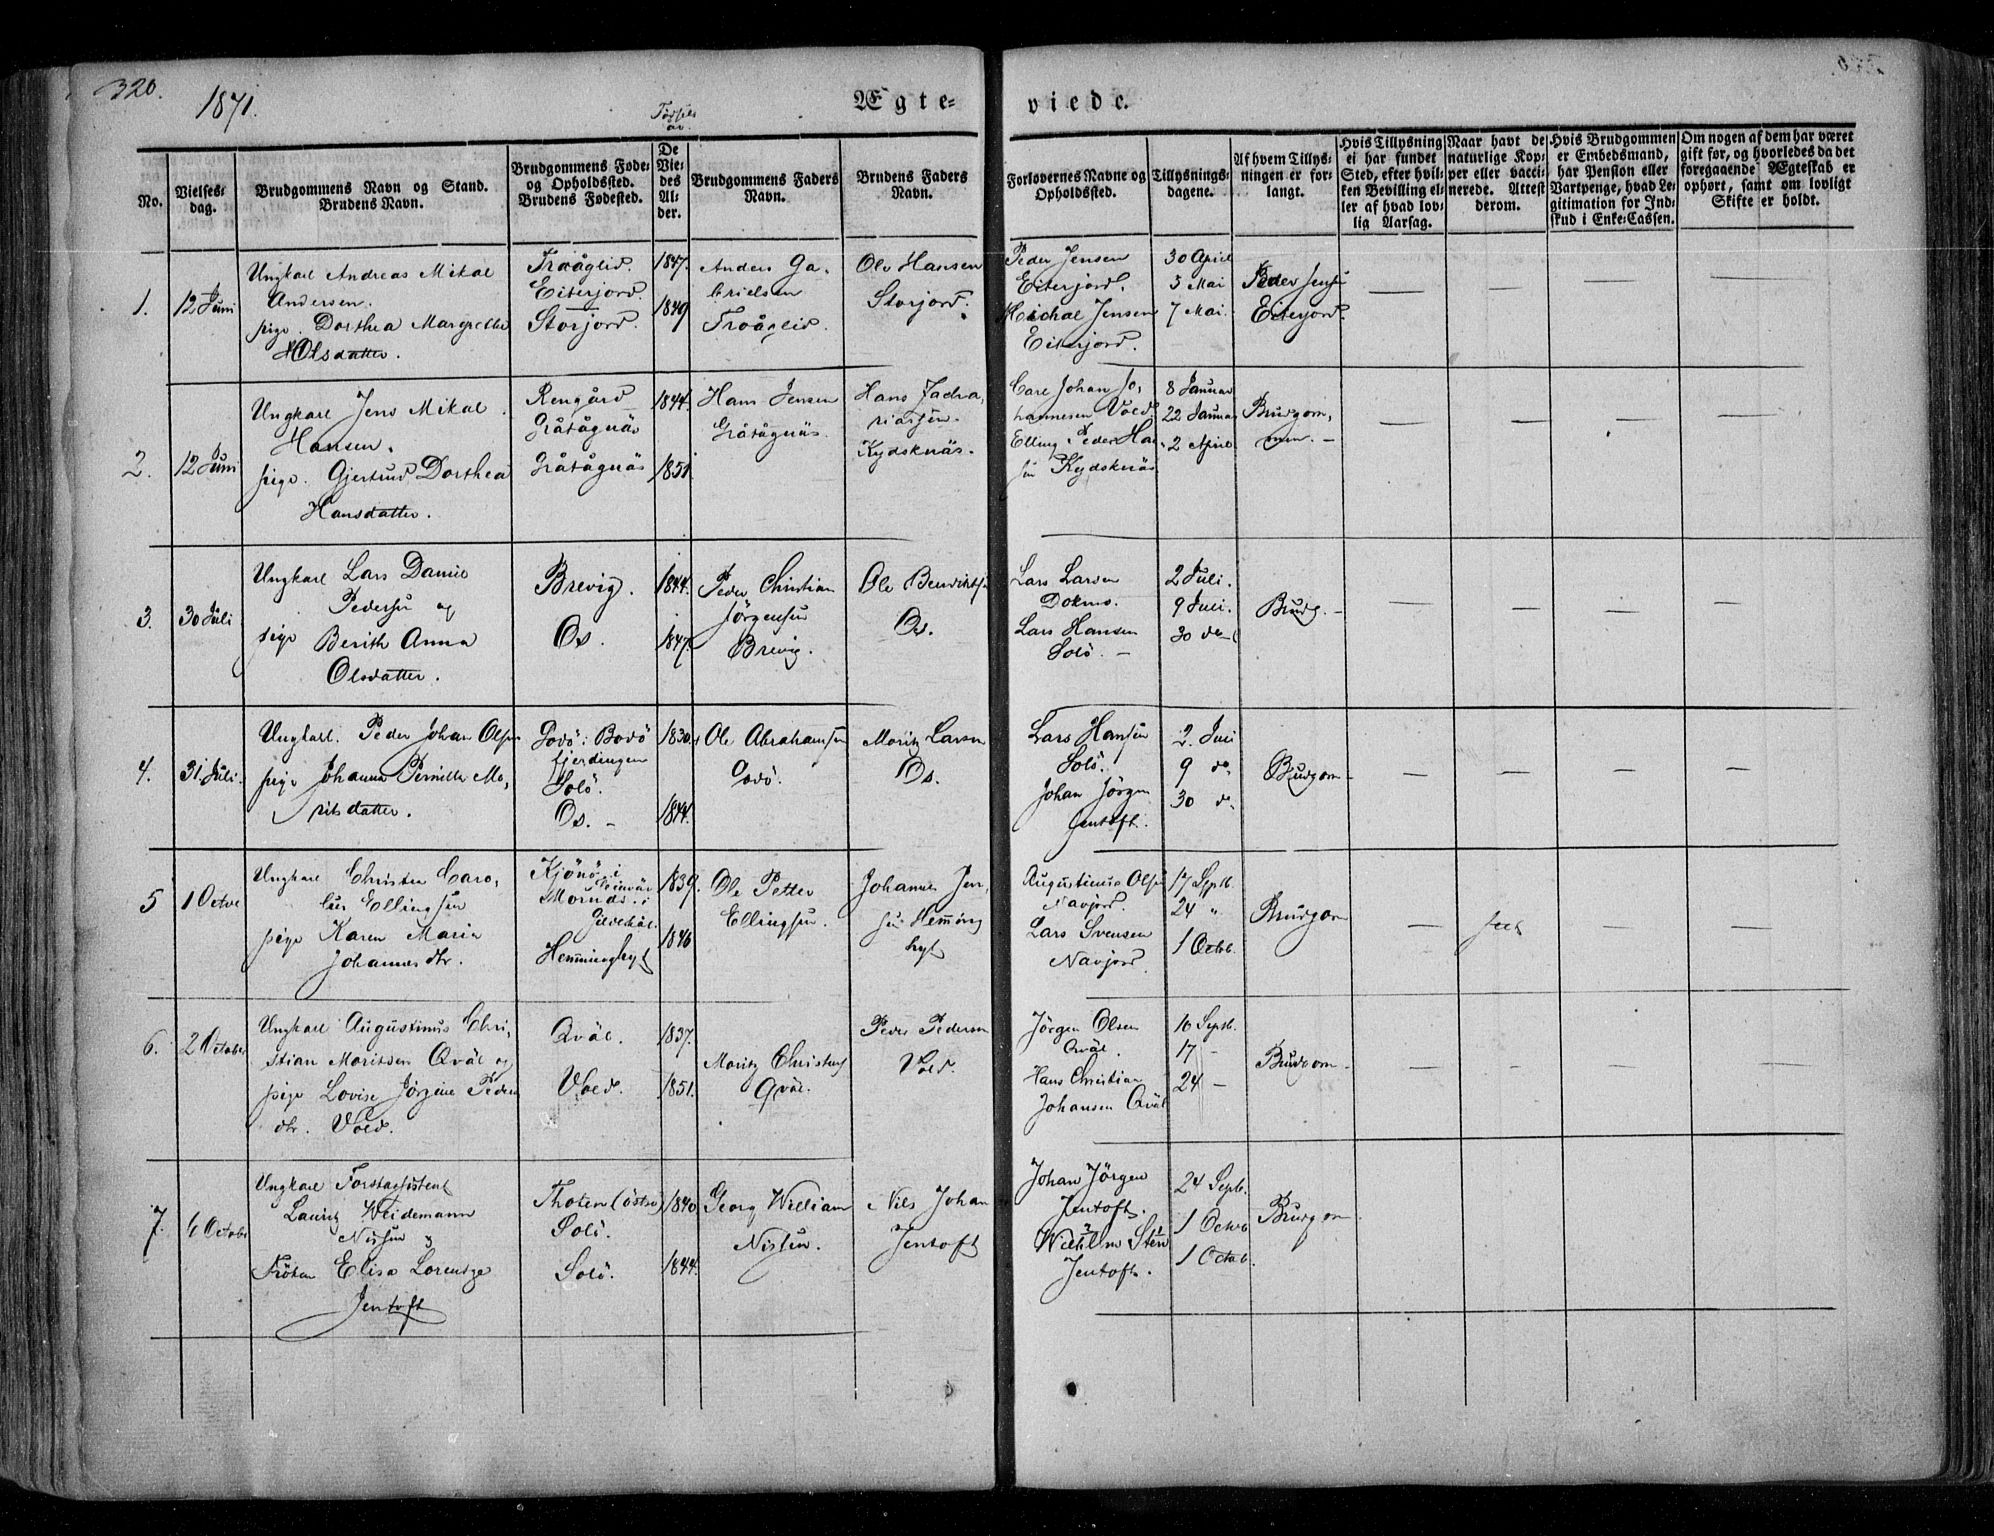 320.
1871.
Ægte-
viede.
Fødsels
aar.
No.
Vielses-
dag.
Brudgommens Navn og Stand.
Brudens Navn.
Brudgommens Føde-
og Opholdssted.
Brudens Fødested.
De
Vie-
des
Al-
der.
Brudgommens Faders
Navn.
Brudens Faders
Navn.
Forlovernes Navne og
Opholdssted.
Tillysnings-
dagene.
Af hvem Tillys-
ningen er for-
langt.
Hvis Tillysning
ei har fundet
Sted, efter hvil-
ken Bevilling el-
ler af hvad lov-
lig Aarsag.
Naar havt de
naturlige Kop-
per eller vacci-
nerede. Attest
derom.
Hvis Brudgommen
er Embedsmand,
har Pension eller
Vartpenge, hvad Le-
gitimation for Ind-
skud i Enke-Cassen.
Om nogen af dem har været
gift før, og hvorledes da det
foregaaende Ægtestab er
ophørt, samt om lovligt
Skifte er holdt.
1.
12 Juni
Ungkarl Andreas Mikal
Andersen.
pige. Dorthea Margrethe
Olsdatter.
Tvråglid.
Eiterjord.
Storjord.
1847.
1849
Anders Ga-
brielsen
Tvråglid.
Ole Hansen
Storjord.
Peder Jensen
Eiterjord.
Michal Jensen
Eiterjord.
30 April
5 Mai
7 Mai.
Peder Jensen
Eiterjord.
2.
12 Juni
Ungkarl Jens Mikal
Hansen.
pige. Gjertrud Dorthea
Hansdatter.
Rengård
Gråtågnäs
Gråtågnäs
1844.
1851
Hans Jensen
Gråtågnäs.
Hans Zacha-
riassen.
Kydsknäs.
Carl Johan Jo-
hannesen Vold.
Elling Peder Han-
sen Kydsknäs
8 Januar
22 Januar
2 April
Brudgom-
men. -
3.
30 Juli
Ungkarl Lars Danie
Pedersen og
pige
Berith Anna
Olsdatter.
Brevig.
Os.
1844.
1847.
Peder Christian
Jörgensen
Brevig.
Ole Bendiktsen
Os.
Lars Larsen
Dokmo.
Lars Hansen
Solö. -
2 Juli.
9 Juli.
30 do
Brudg. -
4.
31 Juli.
Ungkarl. Peder Johan Olsen
pige Johanna Pernille Mo-
ritsdatter.
Godö i Bodö
fjerdingen
Solö.
Os. -
1830.
1844.
Ole Abrahamsen
Godö.
Moritz Larsen
Os.
Lars Hansen
Solö.
Johan Jörgen
Jentoft.
2. Juli
9 do
30 do
Brudgom -
5
1 Octbr
Ungkarl Christen Caro-
lius Ellingsen
pige Karen Maria
Johannesdtr.
Kjönö i
Mornds. i
Gildeskål.
Hemmingheyt
1839.
1846
Ole Petter
Ellingsen
Johannes Jen-
sen Hemming
hyt
Augustinus Olsen
Navjord.
Lars Svensen
Navjord
17 Septb.
24 "
1 Octob.
Brudgom
6.
2 October
Ungkarl Augustinus Chri-
stian Moritsen Qväl og
pige Lovise Jörgine Peders
dtr. Vold.
Qväl.
Vold.
1837.
1851.
Moritz Christens
Qväl.
Peder Pedersen
Vold.
Jörgen Olsen
Qväl.
Hans Christian
Johansen Qväl
10 Septb.
17 -
24 -
Brudgom -
7.
6 Octobr
Ungkarl Forstassistent
Lauritz Weidemann
Nissen &
Fröken Elisa Lorentze
Jentoft
Thoten (östre)
Solö.
Solö.
1840.
1844.
Georg William
Nissen.
Nils Johan
Jentoft
Johan Jörgen
Jentoft.
Wilhelm Steen
Jentoft.
24 Septb.
1 Octob
1 Octob.
Brudgom